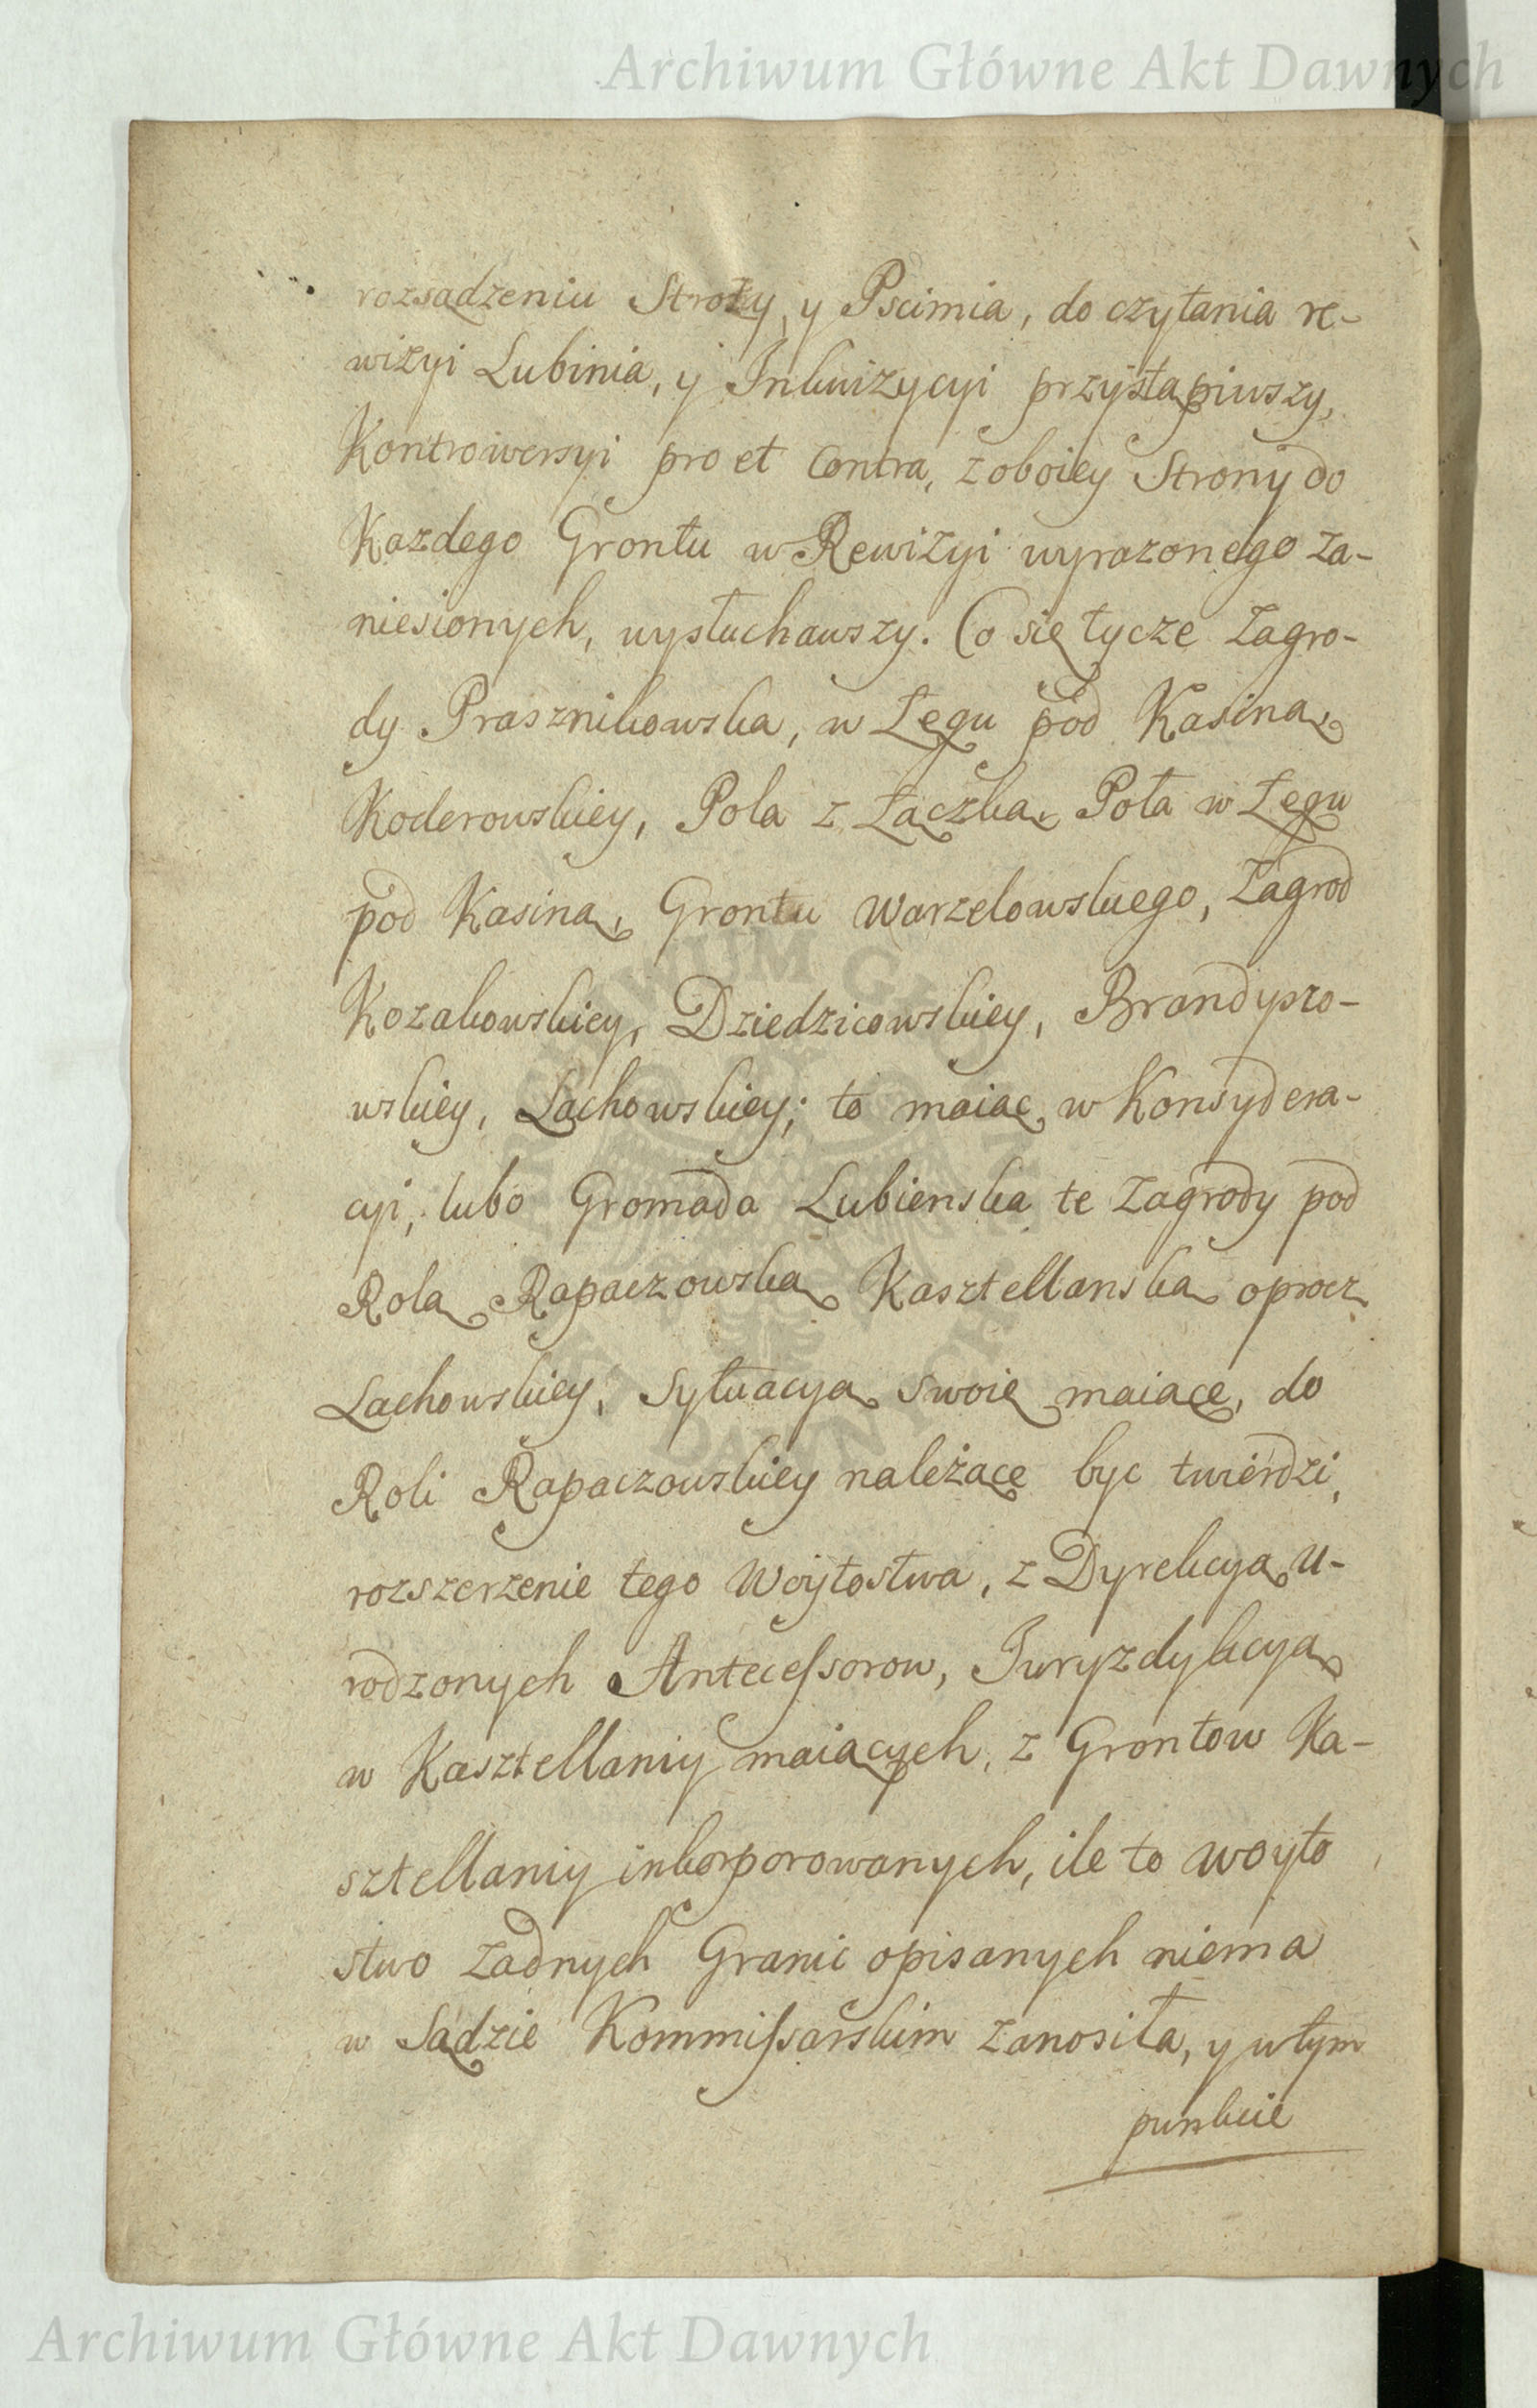 Archiwum Główne Akt Dawnych
rozsądzeniu Stroży, y Pscimia, do czytania re-
wizyi Lubinia, y Inkwizycyi przystąpiwszy,
Kontrowersyi pro et Contra, z oboiey Strony do
Kazdego Grontu w Rewizyi wyrazonego za-
niesionych, wysłuchawszy. Co się tycze Zagro-
dy Prasznikowska, w Łęgu pod Kasiną
Koderowskiey, Pola z Łączką, Pola w Łęgu
pod Kasiną, Grontu Warzelowskiego, Zagrod
Kozakowskiey, Dziedzicowskiey, Brandyzro-
wskiey, Lachowskiey; to maiąc w Konsydera-
cyi, lubo Gromada Lubienska te Zagrody pod
Rolą Rapaczowską Kasztellanską oprocz
Lachowskiey, Sytuacyą swoię maiące, do
Roli Rapaczowskiey należące byc twierdzi,
rozszerzenie tego Woytostwa, z Dyrekcyą U-
rodzonych Antecessorow, Juryzdykcyą
w Kasztellaniy maiących, z Grontow Ka-
sztellaniy inkorporowanych, ile to woyto
stwo żadnych Granic opisanych niema
w Sądzie Kommissarskim zanosiła, y w tym
punkcie
ARCHIWUM GŁÓWNE AKT DAWNYCH
Archiwum Główne Akt Dawnych